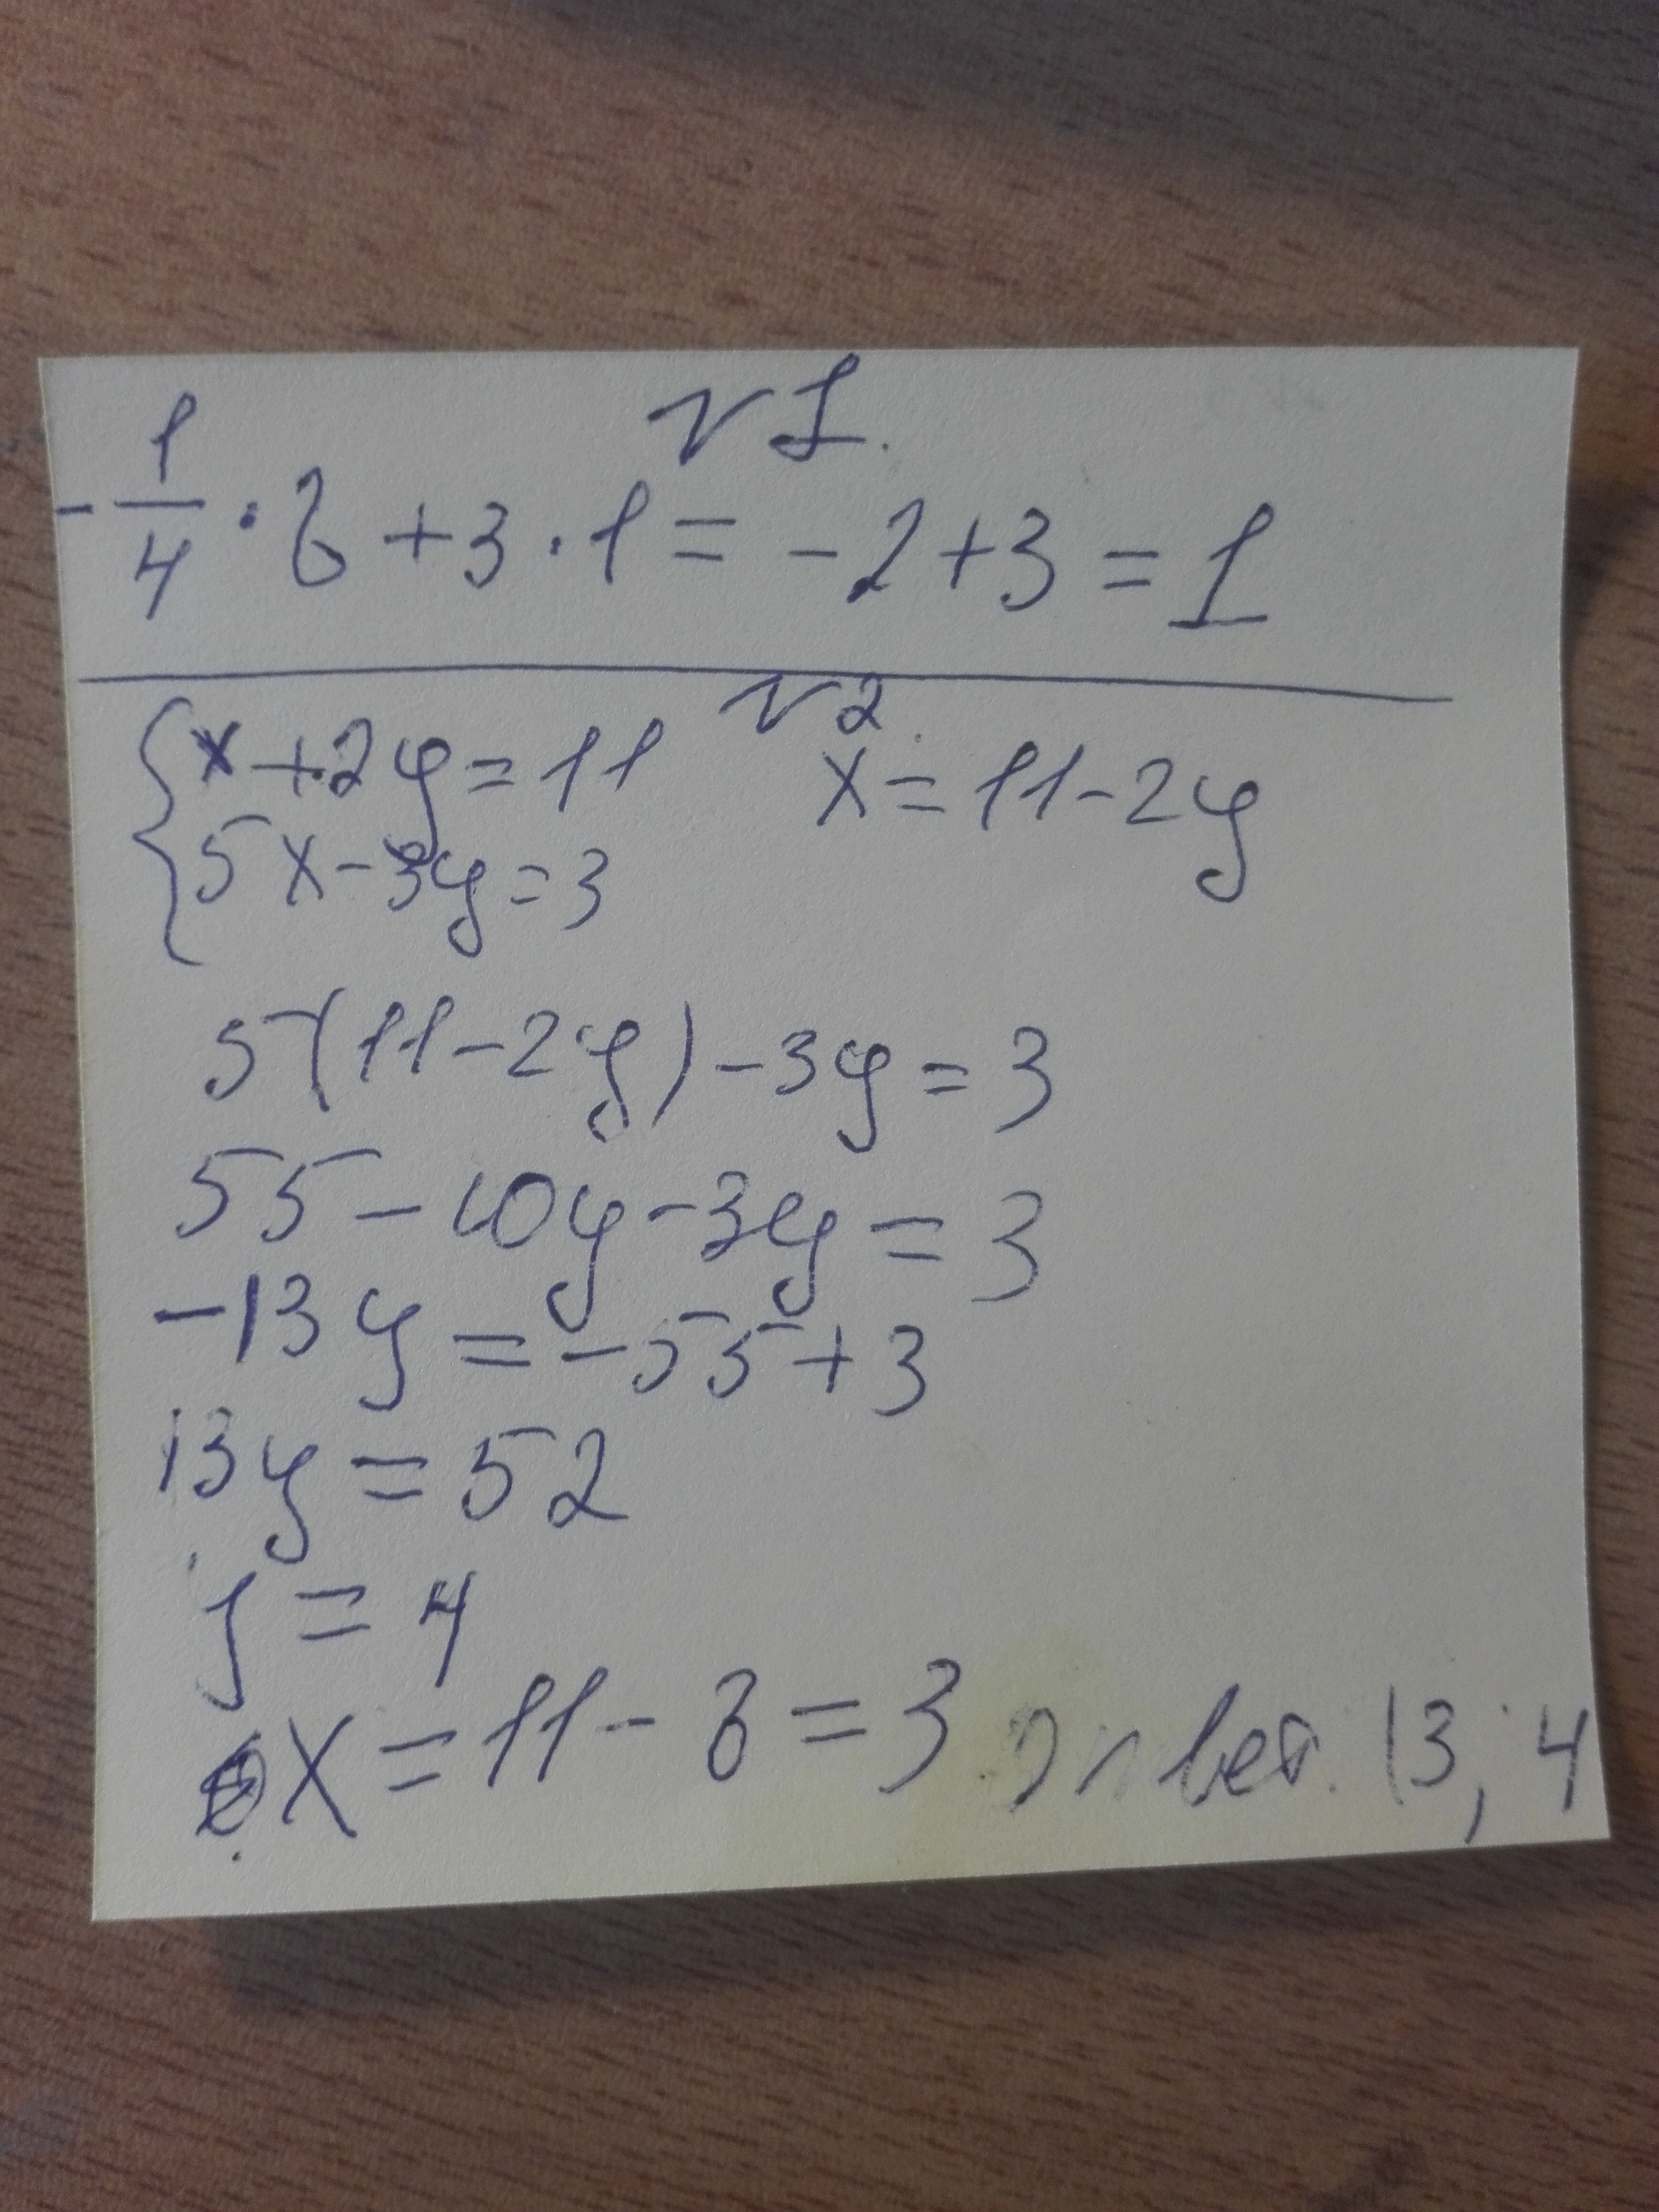 №1.
-1/4 · 8 + 3 · 1 = -2 + 3 = 1
№2.
{ x + 2y = 11
5x - 3y = 3
x = 11 - 2y
5(11 - 2y) - 3y = 3
55 - 10y - 3y = 3
-13y = -55 + 3
13y = 52
y = 4
x = 11 - 8 = 3 Ответ. (3; 4